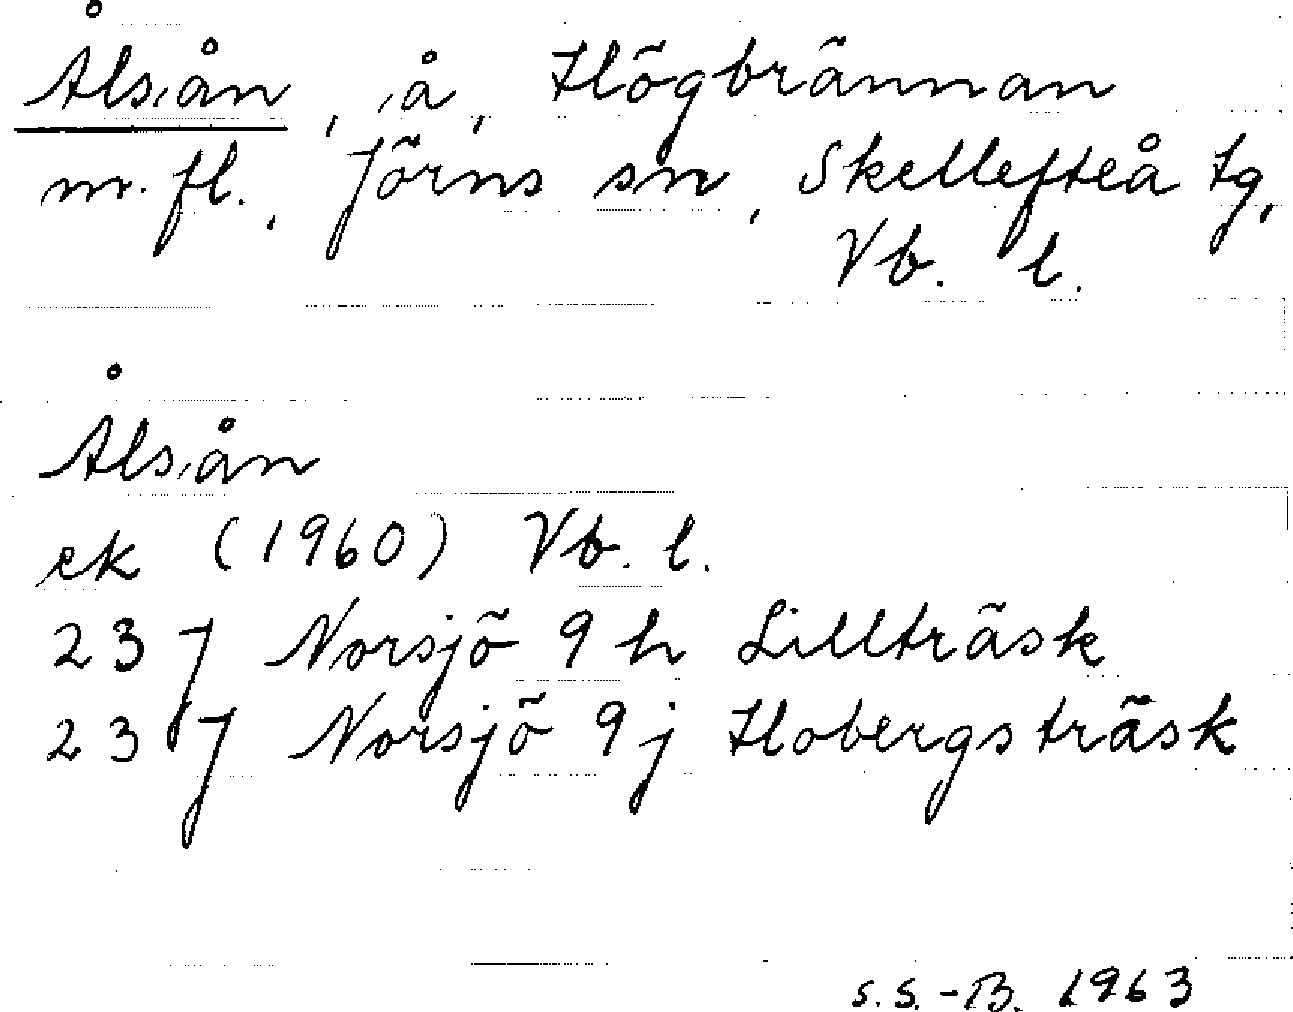 Åls,ån, ,å, Högbrännan
m.fl., Jörns sn, Skellefteå tg,
Vb. l.
Åls,ån
ek (1960) Vb. l.
23 J Norsjö 9 h Lillträsk
23 J Norsjö 9 j Hobergsträsk
S.S.-B. 1963